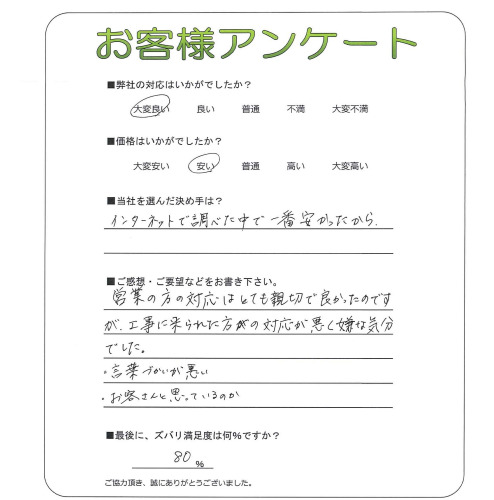 お客様アンケート
■弊社の対応はいかがでしたか？
大変良い 良い 普通 不満 大変不満
■価格はいかがでしたか？
大変安い 安い 普通 高い 大変高い
■当社を選んだ決め手は？
インターネットで調べた中で一番安かったから.
■ご感想・ご要望などをお書き下さい。
営業の方の対応はとても親切で良かったのです
が、工事に来られた方がの対応が悪く嫌な気分
でした。
・言葉づかいが悪い
・お客さんと思っているのか
■最後に、ズバリ満足度は何%ですか？
80 %
ご協力頂き、誠にありがとうございました。